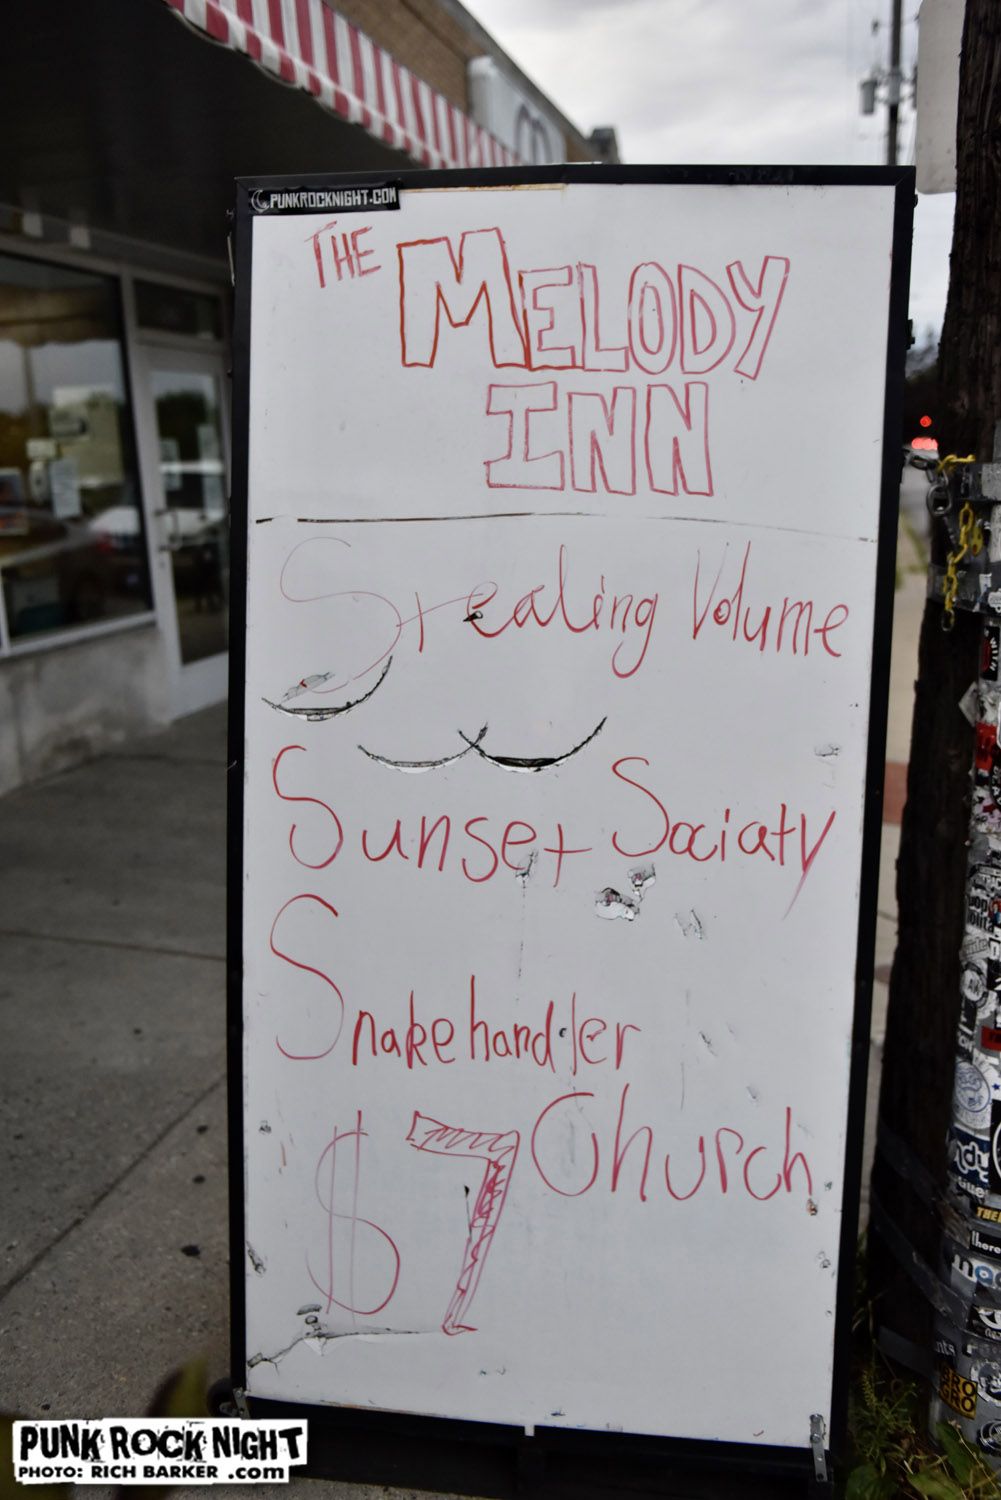 PUNKROCKNIGHT.COM
THE MELODY
INN
Stealing Volume
Sunset Sociaty
Snakehandler
Church
$7
PUNK ROCK NIGHT
PHOTO: RICH BARKER .com